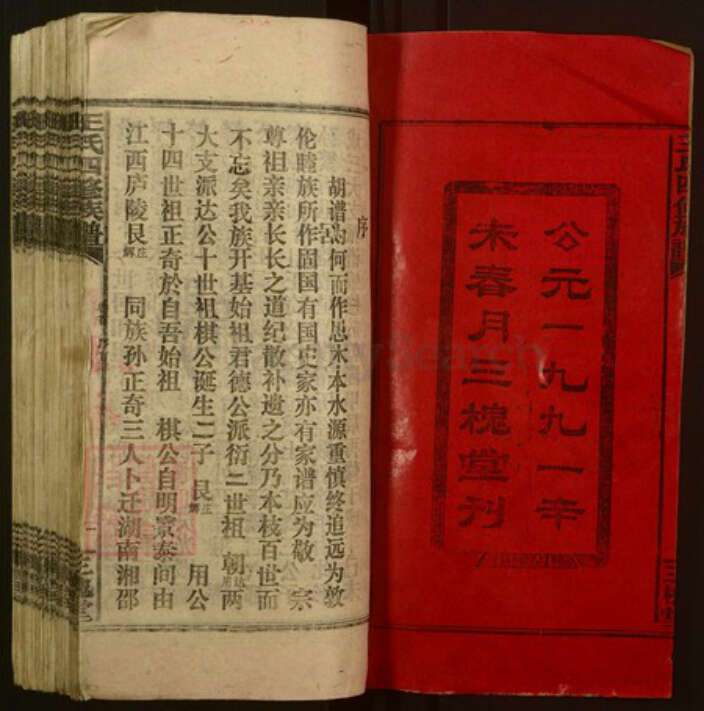 公元一九九一辛
未春月三槐堂刊
序
胡谱为何而作思木本水源重慎终追远为敦
伦睦族所作固国有国史家亦有家谱应为敬 宗
尊祖亲亲长长之道纪散补遗之分乃本枝百世而
不忘矣我族开基始祖君德公派衍二世祖 朝 两
大支派达公十世祖棋公诞生二子 艮 用公
十四世祖正奇於自吾始祖 棋公自明景泰间由
江西庐陵艮 同族孙正奇三人卜迁湖南湘邵
王氏四修族谱
三槐堂